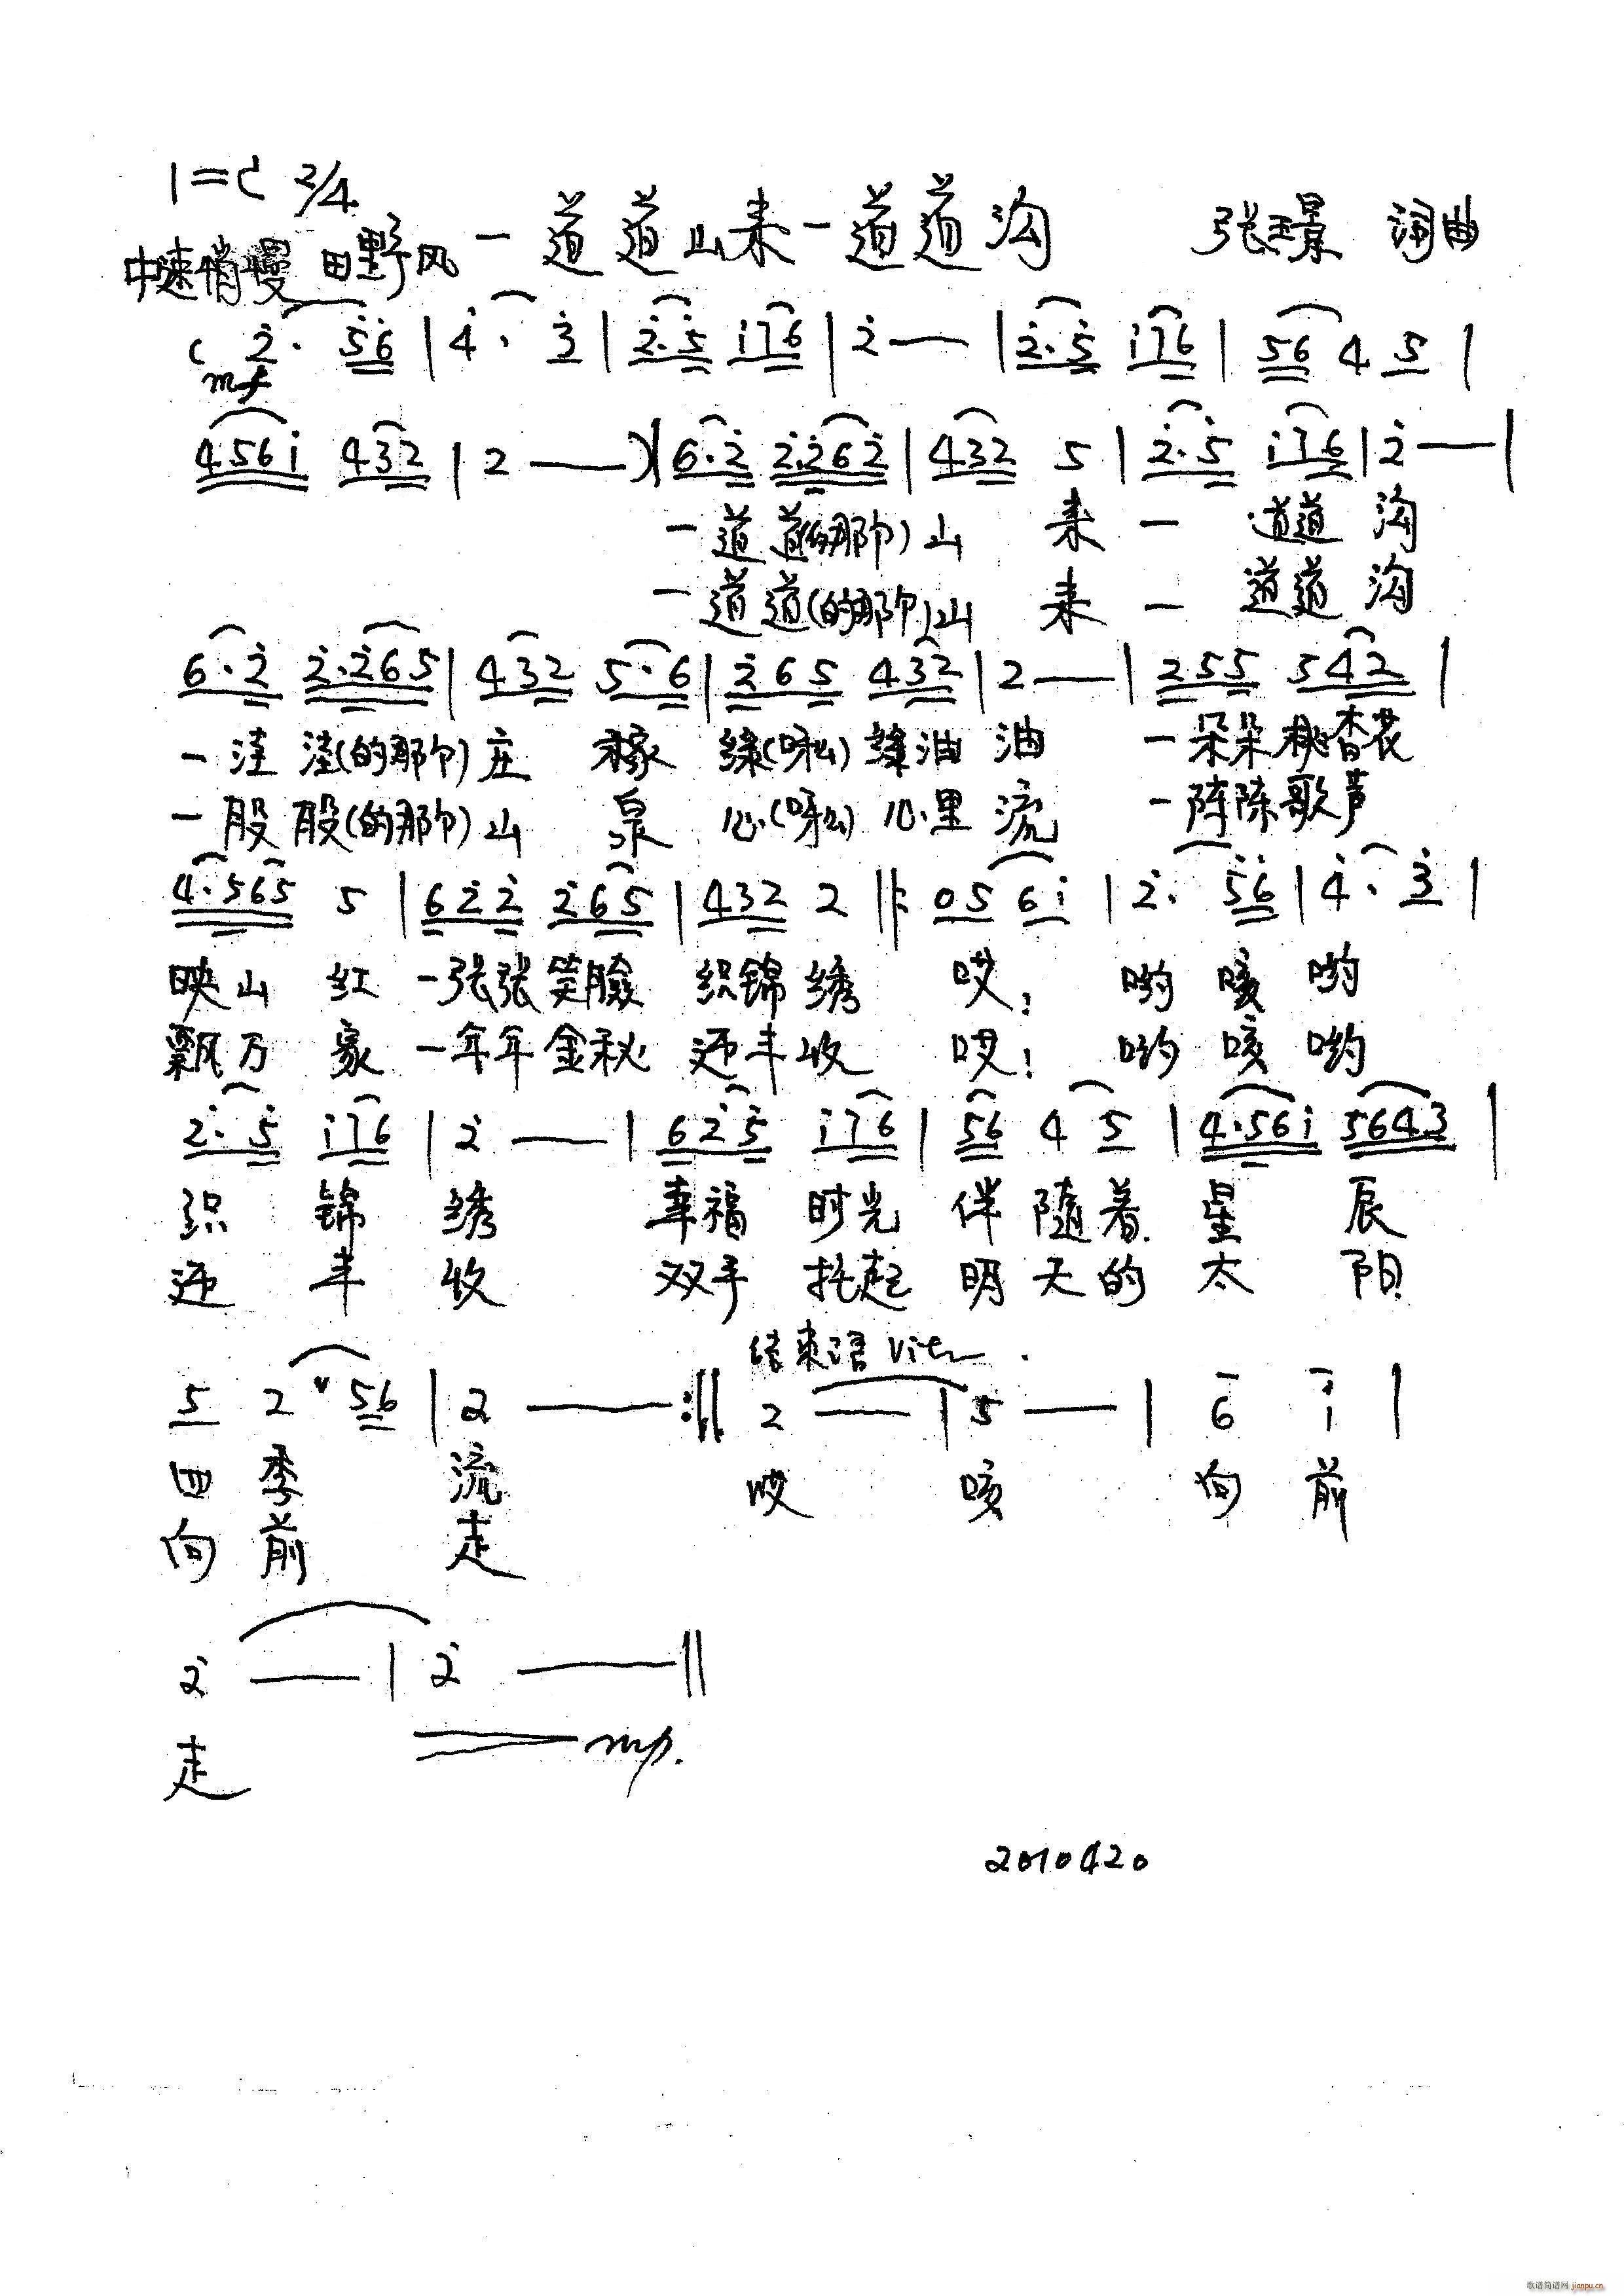 1=C 2/4
中速稍慢 田野风 一道道山来一道道沟 张璟 词曲
( 2̇· 5̇6̇ | 4̇· 3̇ | 2̇·5̇ i76 | 2̇ — | 2̇·5̇ i76 | 56 4 5 |
mf
456i 432 | 2 — )| 6·2̇ 2̇·2̇62̇ | 432 5 | 2̇·5̇ i76 | 2̇ — |
一道道(的那个)山 来 一 道道 沟
一道道(的那个)山 来 一 道道 沟
6·2̇ 2̇·2̇65 | 432 5·6 | 2̇65 432 | 2 — | 255 542 |
一洼洼(的那个)庄 稼 绿(呀么)绿油 油 一朵朵桃杏花
一股股(的那个)山 泉 心(呀么)心里 流 一阵阵歌声
4·565 5 | 62̇2̇ 2̇65 | 432 2 ‖: 05 6i | 2̇· 5̇6̇ | 4̇· 3̇ |
映山 红 一张张笑脸 织锦 绣 哎! 哟 咳 哟
飘万 家 一年年金秋 迎丰收 哎! 哟 咳 哟
2̇·5̇ i76 | 2̇ — | 62̇5̇ i76 | 56 4 5 | 4·56i 5643 |
织 锦 绣 幸福 时光 伴 随着 星 辰
迎 丰 收 双手 托起 明 天的 太 阳
结束语
5 2 ᵛ 56 | 2 — :‖ 2 — | 5 — | 6 i |
四 季 流 哎 咳 向 前
向 前 走
2̇ — | 2̇ — ‖
走 mp.
20100420
歌谱简谱网 jianpu.cn